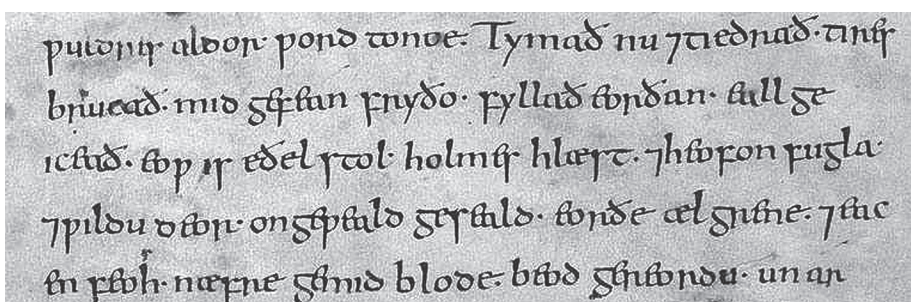 ƿuldris aldor· ƿord to noe. Tymað nu ⁊ tiedrað· tires
brucað· mid gefean fryðo· fyllað eorðan· eall ge
iceað· eoƿ is eðel stol· holmes hlæst. ⁊ heofon fugla·
⁊ ƿildu deor· on geƿeald geseald· eorðe æl grene· ⁊ eac
en feoh· næfre ge mid blode· beod gereordu· un ar